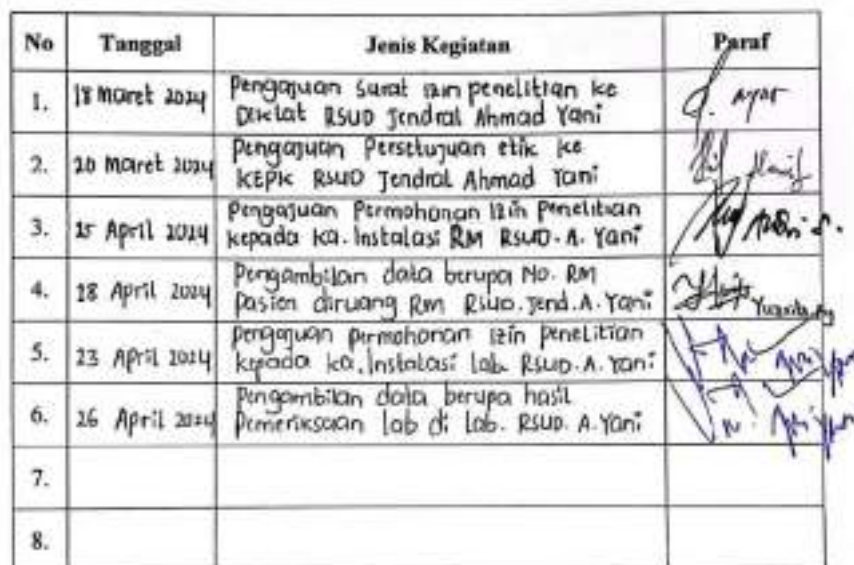 No Tanggal Jenis Kegiatan Paraf
1. 18 Maret 2024 Pengajuan Surat izin penelitian ke
Diklat RSUD Jendral Ahmad Yani
2. 20 Maret 2024 Pengajuan Persetujuan etik ke
KEPK RSUD Jendral Ahmad Yani
3. 25 April 2024 Pengajuan Permohonan Izin Penelitian
kepada Ka. Instalasi RM RSUD. A. Yani
4. 28 April 2024 Pengambilan data berupa No. RM
Pasien diruang RM RSUD. Jend. A. Yani
5. 23 April 2024 pengajuan permohonan izin penelitian
kepada ka. Instalasi Lab. RSUD. A. Yani
6. 26 April 2024 Pengambilan data berupa hasil
Pemeriksaan lab di Lab. RSUD. A. Yani
7.
8.